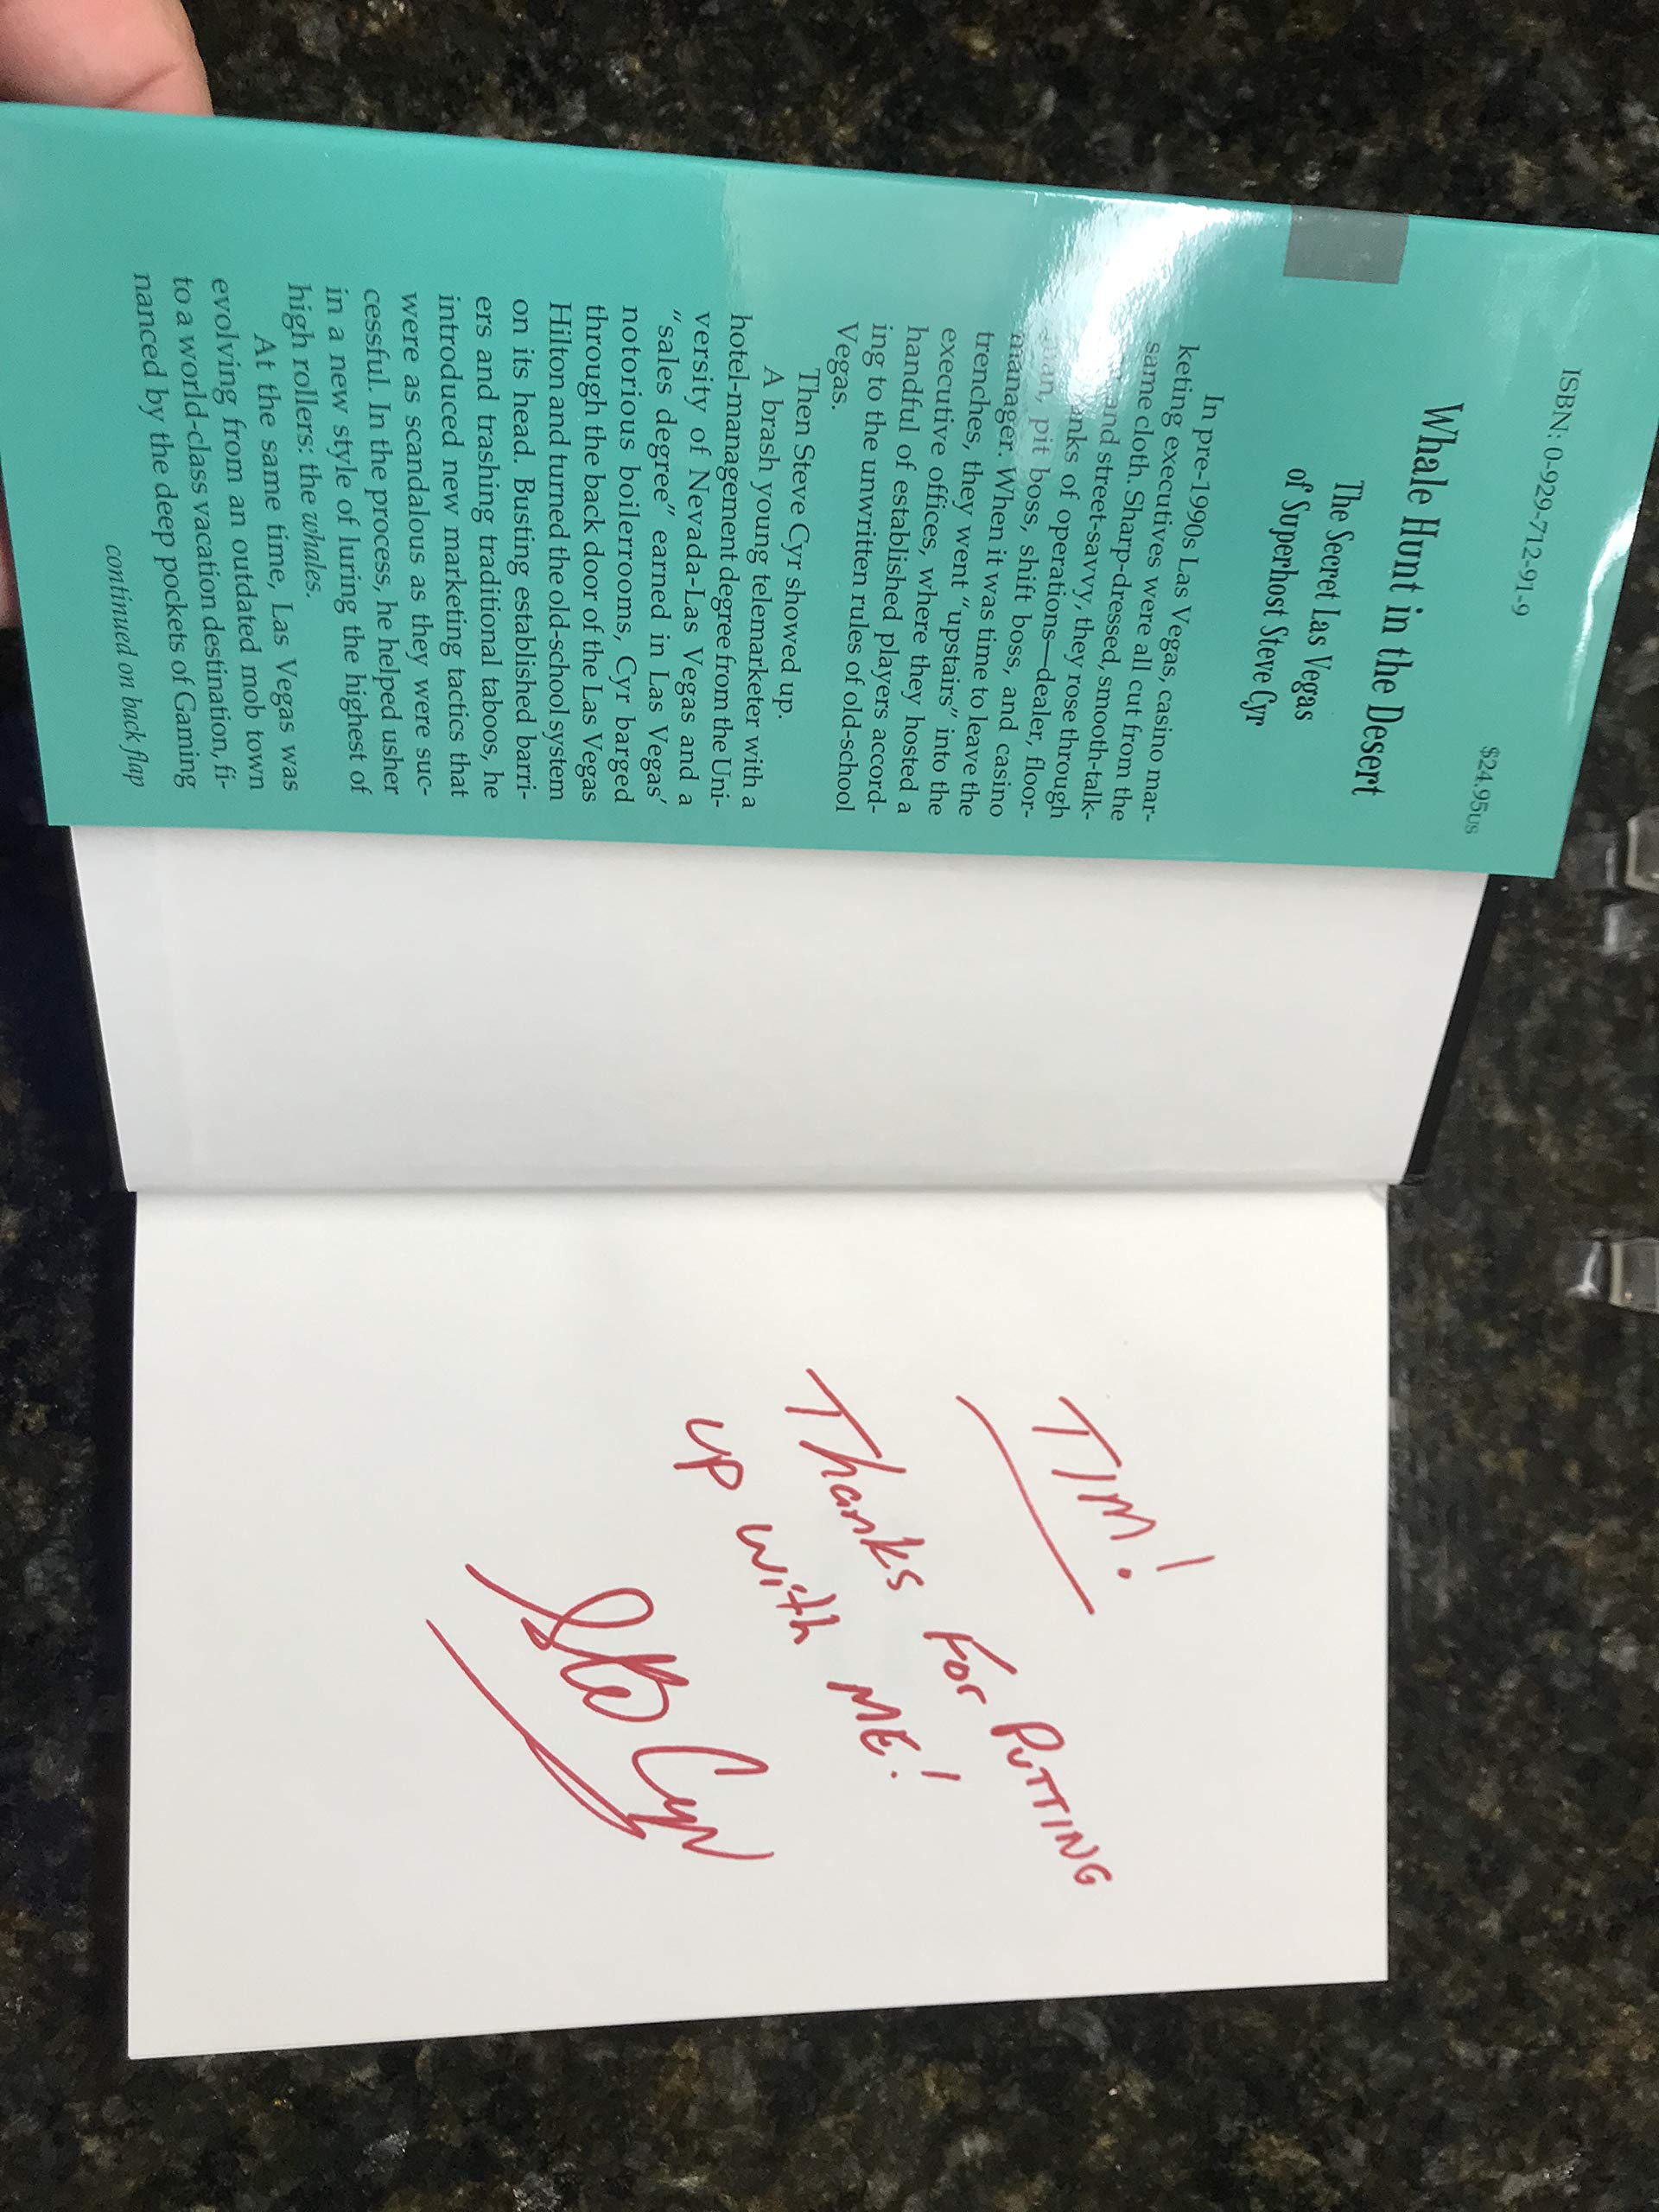 ISBN: 0-929-712-91-9
$24.95US
Whale Hunt in the Desert
The Secret Las Vegas
of Superhost Steve Cyr
In pre-1990s Las Vegas, casino mar-
keting executives were all cut from the
same cloth. Sharp-dressed, smooth-talk-
and street-savvy, they rose through
of operations—dealer, floor-
pit boss, shift boss, and casino
manager. When it was time to leave the
trenches, they went "upstairs" into the
executive offices, where they hosted a
handful of established players accord-
ing to the unwritten rules of old-school
Vegas.
Then Steve Cyr showed up.
A brash young telemarketer with a
hotel-management degree from the Uni-
versity of Nevada-Las Vegas and a
"sales degree" earned in Las Vegas'
notorious boilerrooms, Cyr barged
through the back door of the Las Vegas
Hilton and turned the old-school system
on its head. Busting established barri-
ers and trashing traditional taboos, he
introduced new marketing tactics that
were as scandalous as they were suc-
cessful. In the process, he helped usher
in a new style of luring the highest of
high rollers: the whales.
At the same time, Las Vegas was
evolving from an outdated mob town
to a world-class vacation destination, fi-
nanced by the deep pockets of Gaming
continued on back flap
TIM!
Thanks For PUTTING
up with ME!
Steve Cyr